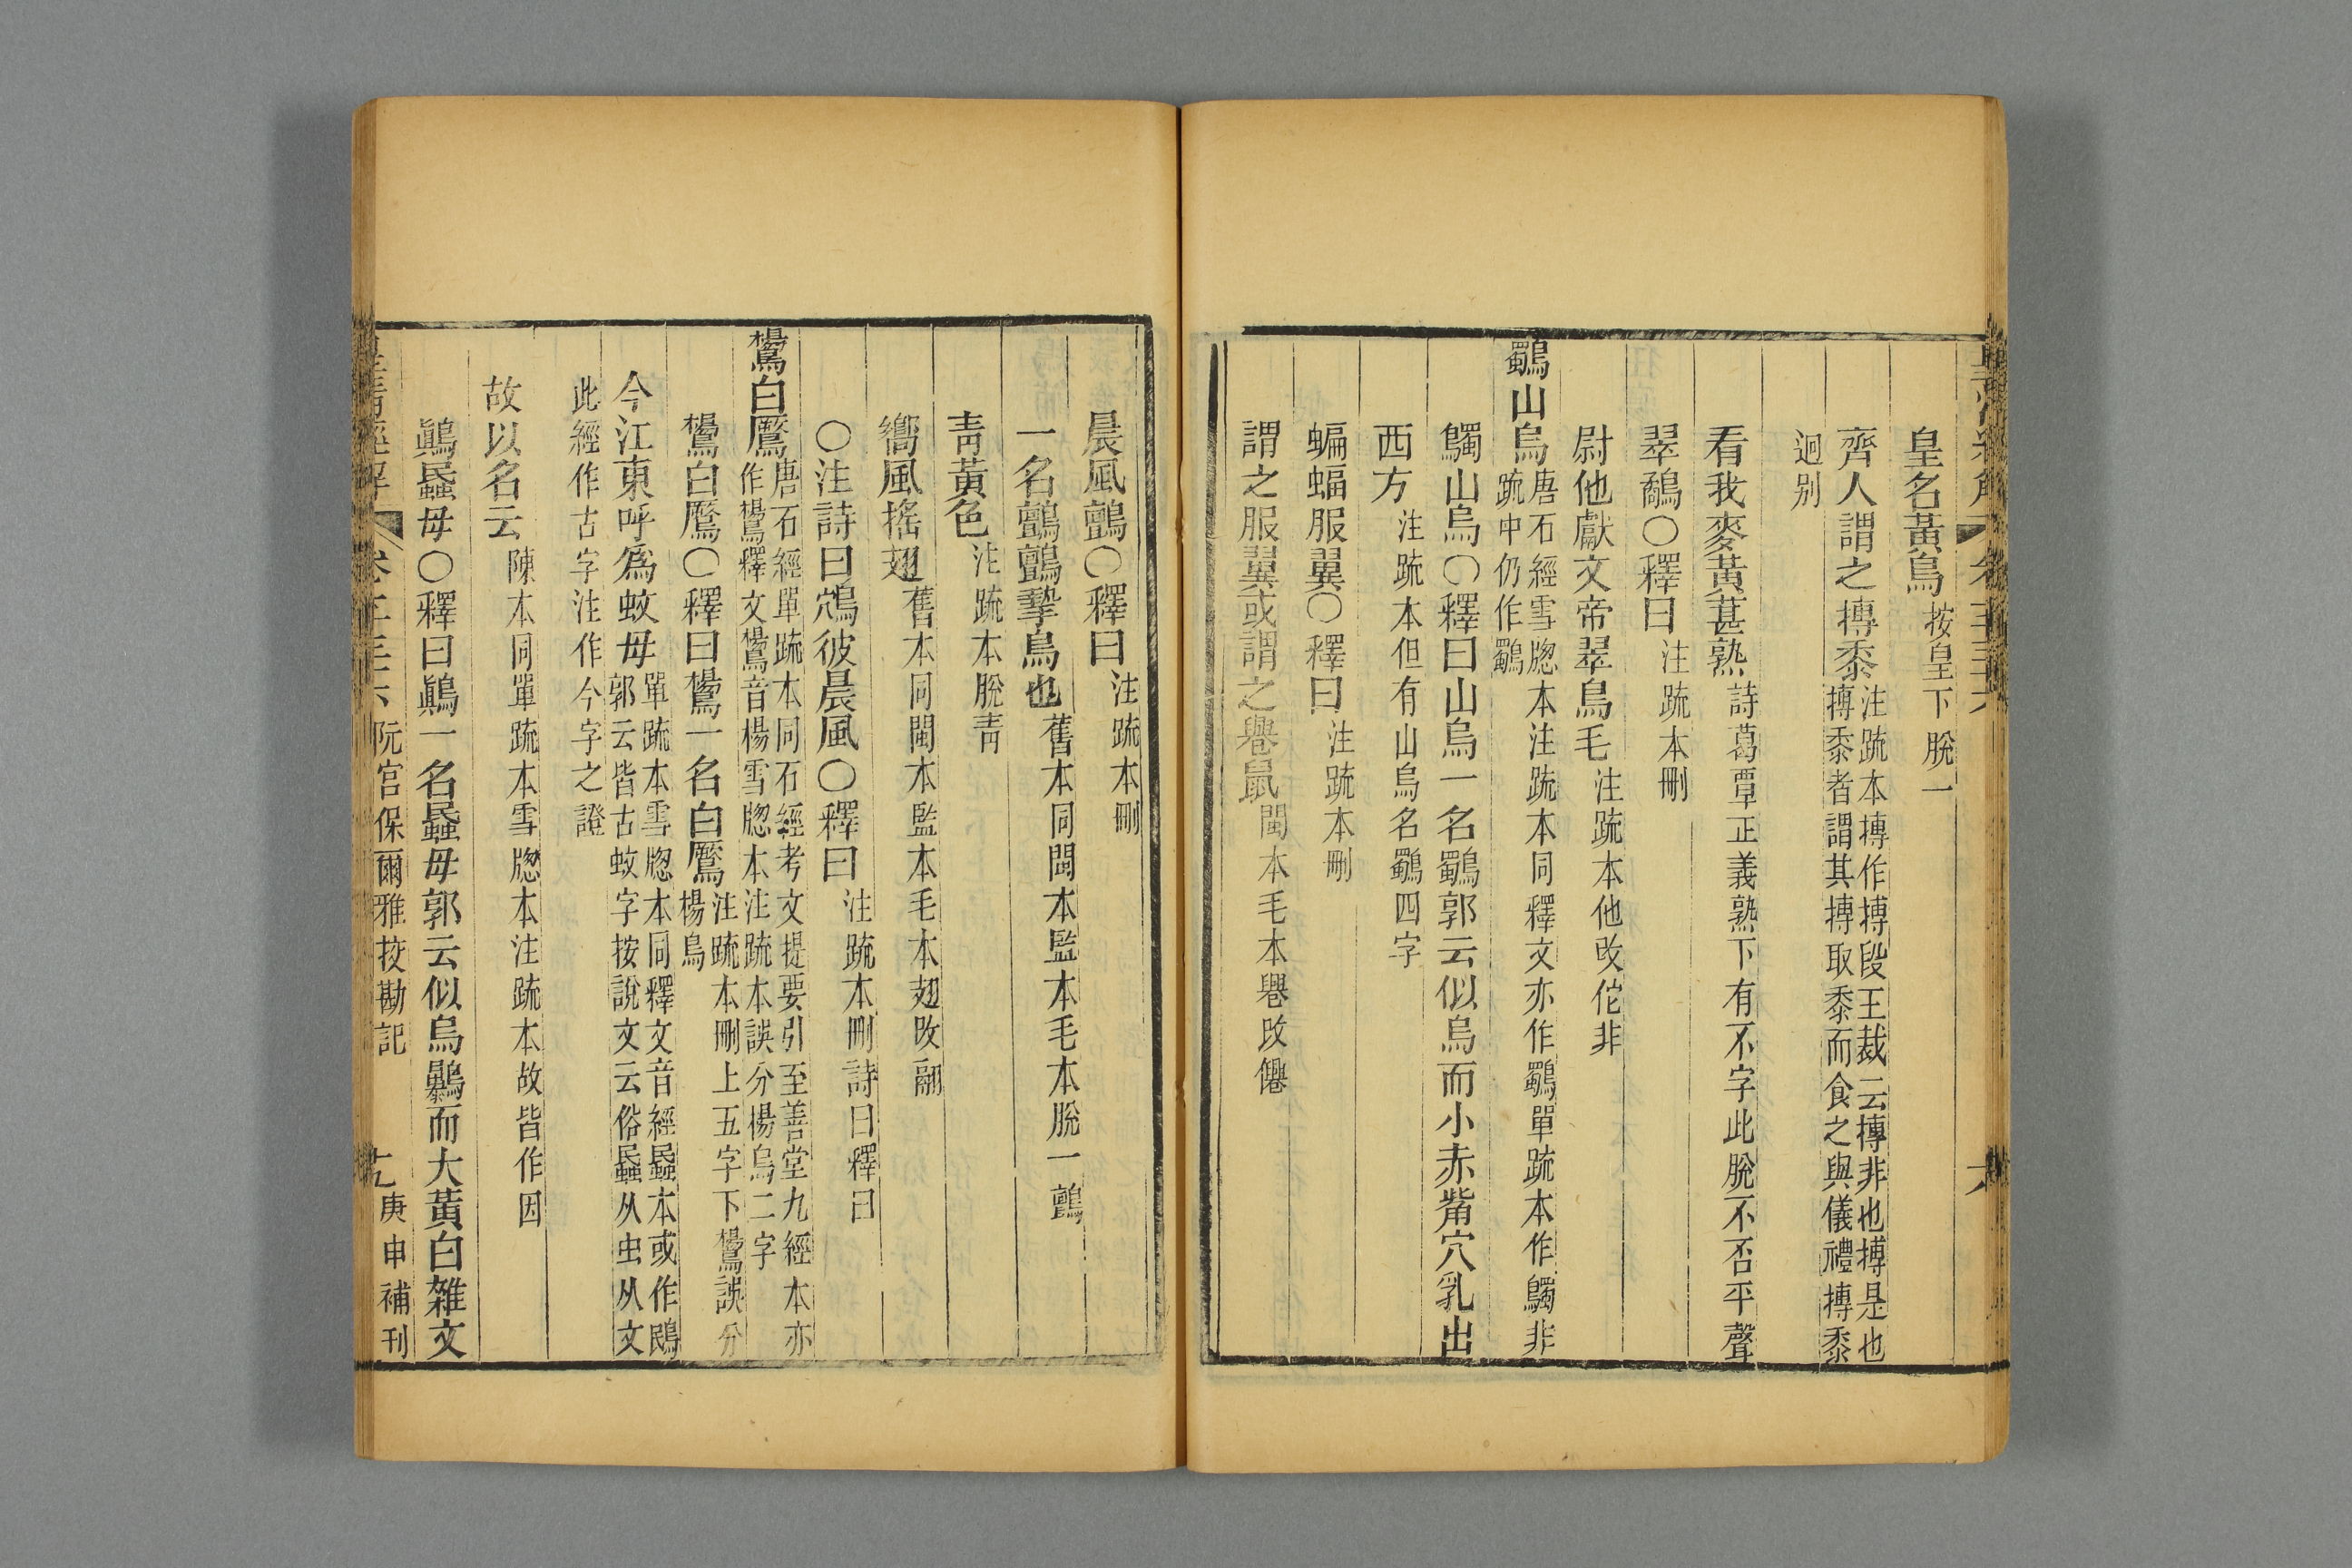 皇名黃鳥按皇下脫一
齊人謂之摶黍注䟽本摶作搏段玉裁云摶非也搏是也
搏黍者謂其搏取黍而食之與儀禮摶黍
迥别
看我麥黃葚熟詩葛覃正義熟下有不字此脫不否平聲
翠鷸○釋曰注䟽本刪
尉他獻文帝翠鳥毛注䟽本他改佗非
鸀山烏唐石經雪牕本注䟽本同釋文亦作鸀單䟽本作鸀非
䟽中仍作鸀
鸀山烏○釋曰山烏一名鸀郭云似烏而小赤觜穴乳出
西方注䟽本但有山烏名鸀四字
蝙蝠服翼○釋曰注䟽本刪
謂之服翼或謂之䙴鼠閩本毛本䙴改僊
晨風鸇○釋曰注䟽本刪
一名鸇鸇摯鳥也舊本同閩本監本毛本脫一鸇
青黃色注䟽本脫青
嚮風搖翅舊本同閩本監本毛本翅改翮
○注詩曰鴥彼晨風○釋曰注䟽本刪詩曰釋曰
鸉白鷢唐石經單䟽本同石經考文提要引至善堂九經本亦
作鸉釋文鸉音楊雪牕本注䟽本誤分楊鳥二字
鸉白鷢○釋曰鸉一名白鷢注䟽本刪上五字下鸉誤分
楊鳥
今江東呼爲蚊母單䟽本雪牕本同釋文音經蟁本或作鴖
郭云皆古蚊字按說文云俗蟁从虫从文
此經作古字注作今字之證
故以名云陳本同單䟽本雪牕本注䟽本故皆作因
鷏蟁母○釋曰鷏一名蟁母郭云似烏鸔而大黃白雜文
卷一千三十六 阮宮保爾雅挍勘記 庚申補刊